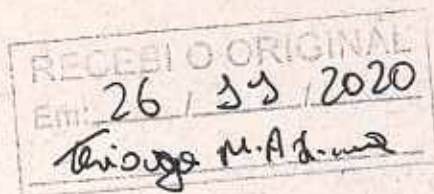 RECEBI O ORIGINAL
Em: 26 / 11 / 2020
M.A